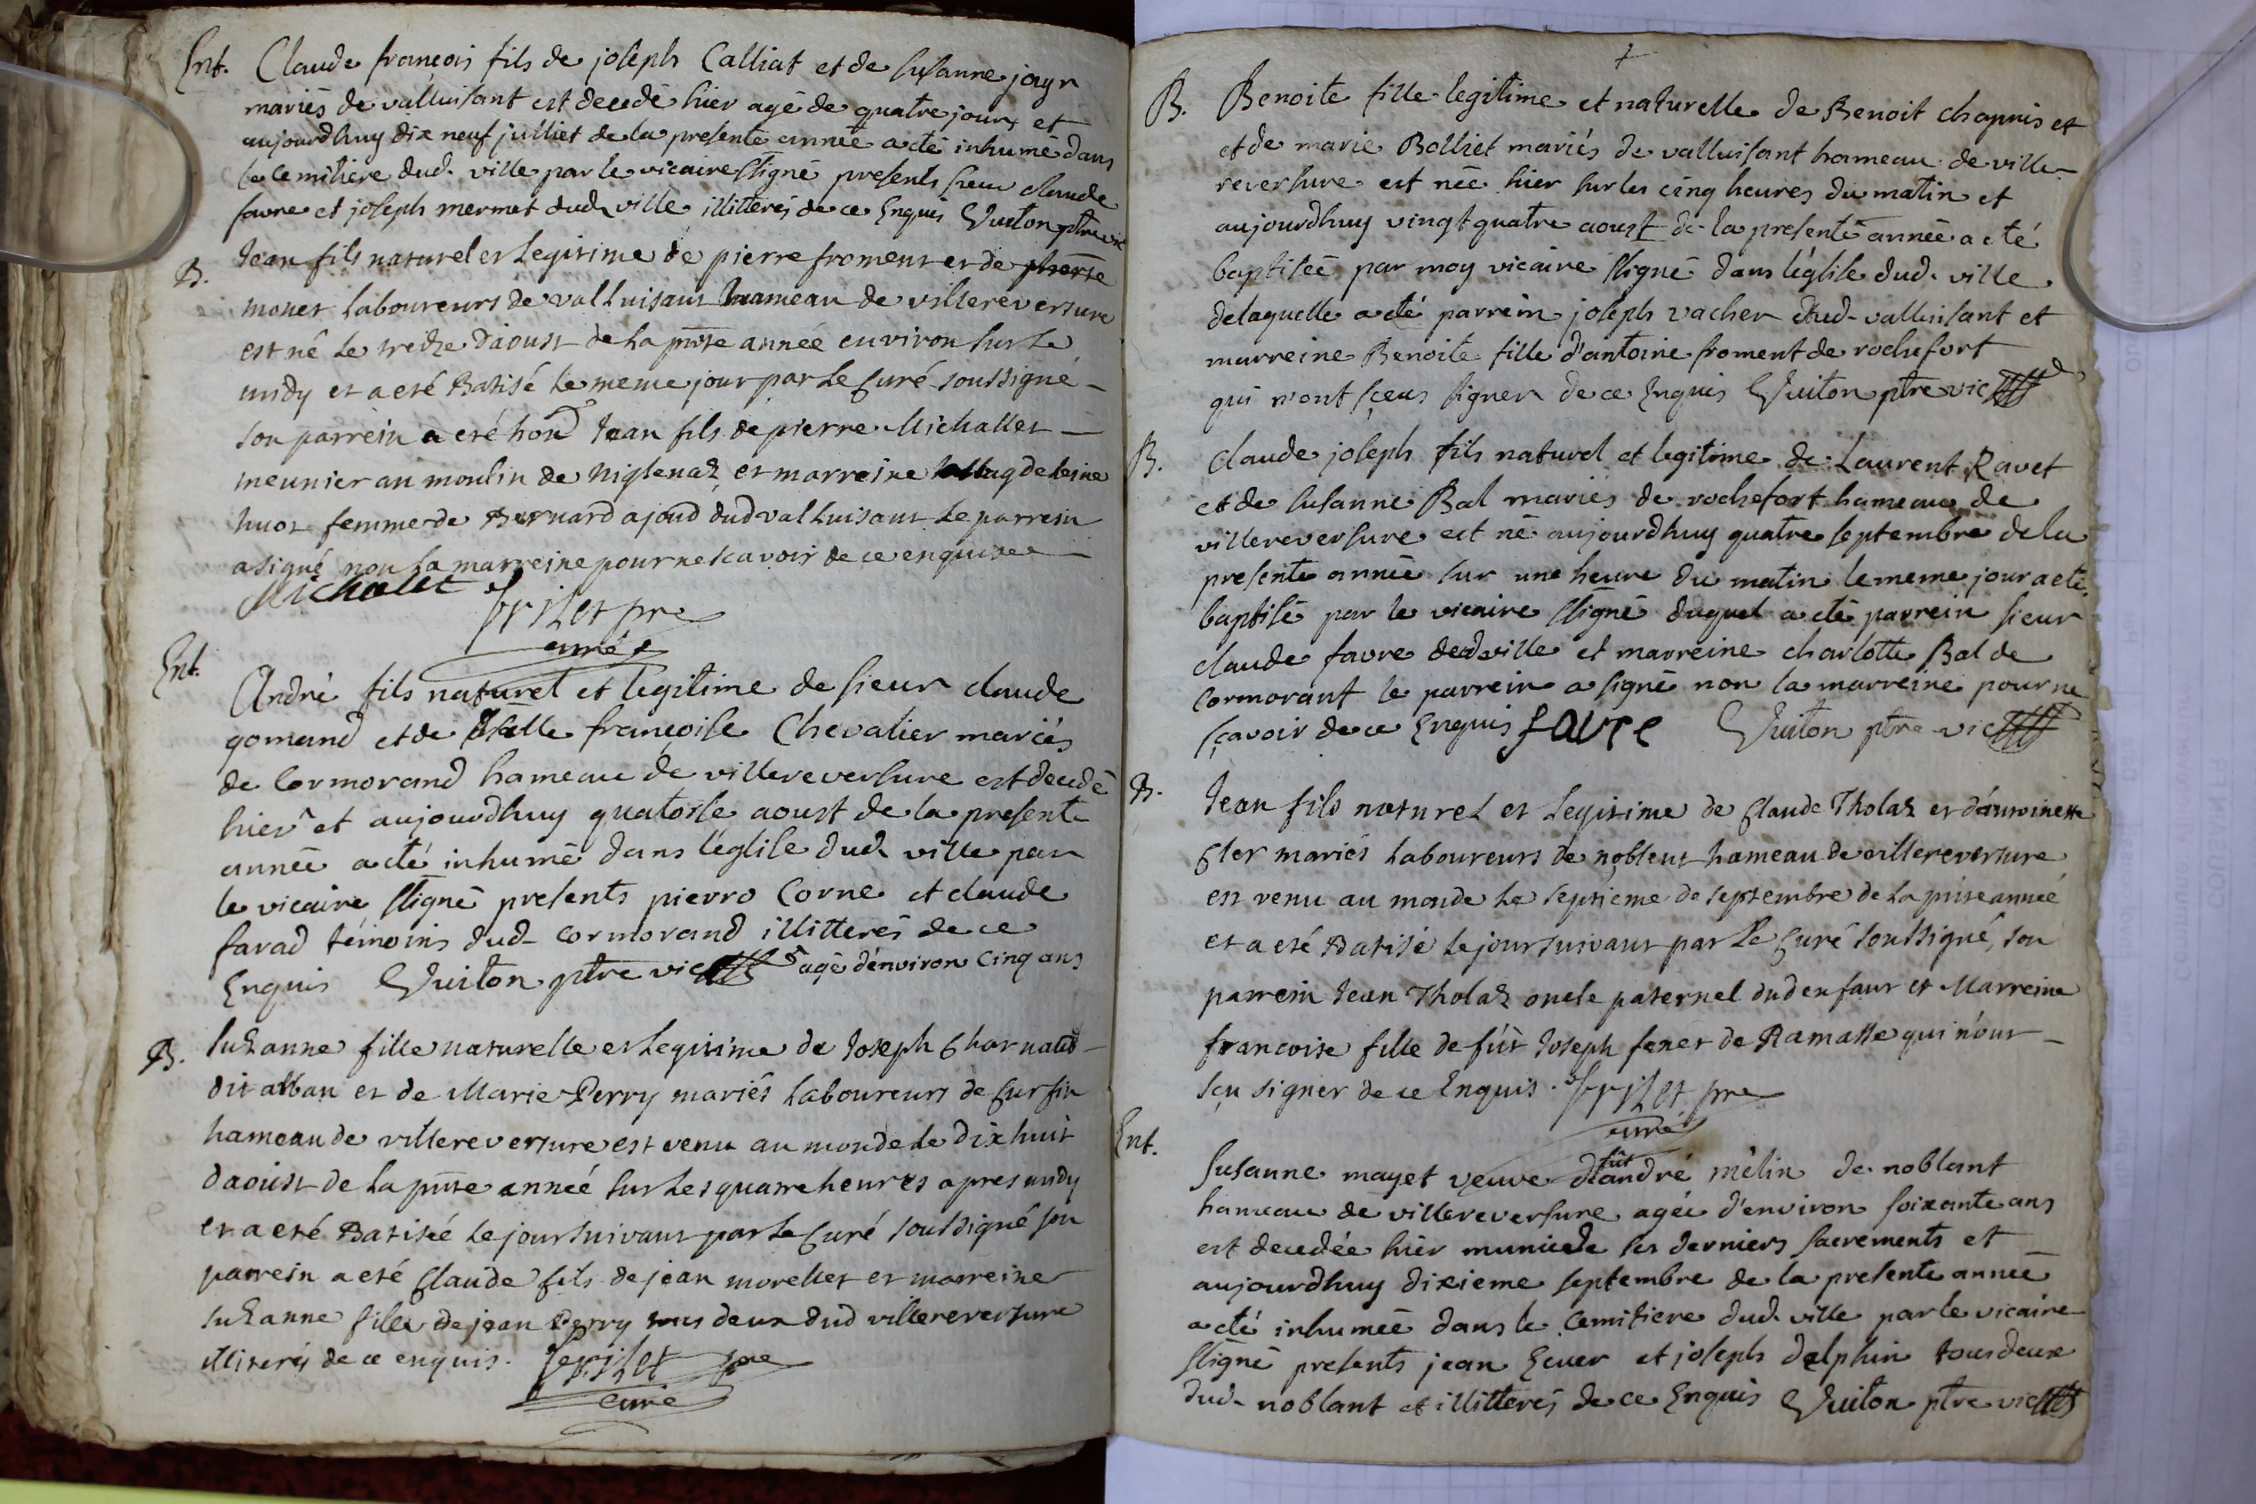 Ent. Claude françois fils de joseph Calliat et de susanne jayr
mariés de valluisant est decedé hier agé de quatre jours et
aujourdhuy dix neuf julliet de la presente année a eté inhumé dans
le cemitiere dud. ville par le vicaire ssigné presents sieur claude
favre et joseph mermet dud ville illitterés de ce Enquis Guiton ptre vic
B. Jean fils naturel et Legitime de pierre froment et de
monet Laboureurs de valluisant hameau de villereversure
est né Le treize d'aoust de La pnte année environ sur Le
midy et a eté Batisé Le meme jour par Le Curé soussigné
son parrein a eté hond Jean fils de pierre Michallet
meunier au moulin de et marreine Magdeleine
huot femme de Bernard ajoud dud valluisant Le parrein
a signé non La marreine pour ne scavoir de ce enquise
Michallet
pre
curé
Ent. André fils naturel et legitime de sieur claude
gomand et de françoise Chevalier mariés
de Cormorand hameau de villereversure est decedé
hier et aujourdhuy quatorse aoust de la presente
année a eté inhumé dans l'église dud ville par
le vicaire ssigné presents pierre Corne et claude
farad témoins dud Cormorand illitterés de ce
Enquis Guiton ptre vic agé d'environ Cinq ans
B. Suzanne fille naturelle et Legitime de Joseph Charnaud
dit alban et de Marie Perry mariés Laboureurs de Cursin
hameau de villereversure est venu au monde Le dix huit
d'aoust de La pnte année sur Les quatre heures apres midy
et a eté Batisée Le jour suivant par Le Curé soussigné son
parrein a eté Claude fils de jean morellet et marreine
suzanne fille de jean Perry tous deux dud villereversure
illiterés de ce enquis. pre
curé
B. Benoite fille legitime et naturelle de Benoit chapuis et
et de marie Bolliet mariés de valluisant hameau de ville
reversure est née hier sur les cinq heures du matin et
aujourdhuy vingt quatre aoust de la presente année a eté
baptisée par moy vicaire ssigné dans l'église dud. ville
de laquelle a eté parrein joseph vacher dud valluisant et
marreine Benoite fille d'antoine froment de rochefort
qui n'ont sceus signer de ce Enquis Guiton ptre vic
B. Claude joseph fils naturel et legitime de Laurent Ravet
et de susanne Bal mariés de rochefort hameau de
villereversure est né aujourdhuy quatre septembre de la
presente année sur une heure du matin le meme jour a eté
baptisé par le vicaire ssigné duquel a eté parrein sieur
claude favre dud ville et marreine charlotte Bal de
Cormorant le parrein a signé non la marreine pour ne
sçavoir de ce Enquis favre Guiton ptre vic
B. Jean fils naturel et Legitime de Claude Tholaz et d'antoinette
Cler mariés Laboureurs de noblent hameau de villereversure
est venu au monde Le septieme de septembre de La pnte année
et a eté Batisé Le jour suivant par Le Curé soussigné, son
parrein Jean Tholaz oncle paternel dud enfant et Marreine
francoise fille de fût Joseph fenet de Ramasse qui n'ont
sçu signer de ce Enquis. pre
curé
Ent. Susanne mayet veuve d'
fût
andré mélin de noblant
hameau de villereversure agée d'environ soixante ans
est decedée hier munie de ses derniers sacrements et
aujourdhuy dixieme septembre de la presente année
a eté inhumée dans le Cemitiere dud. ville par le vicaire
ssigné presents jean Ecuer et joseph delphin tous deux
dud. noblant et illitterés de ce Enquis Guiton ptre vic